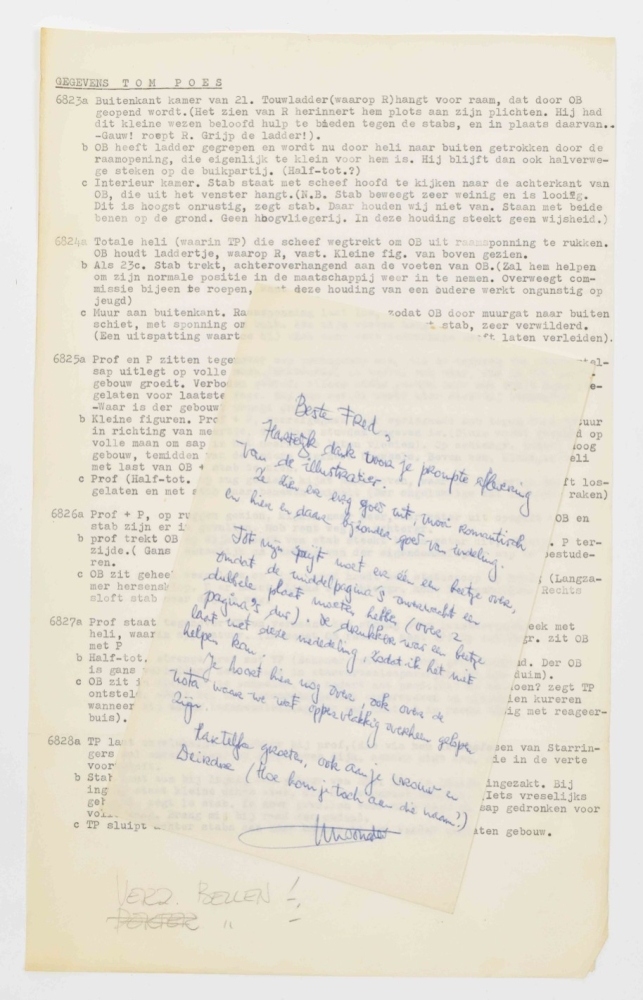 GEGEVENS T O M  P O E S
6823a Buitenkant kamer van 21. Touwladder(waarop R)hangt voor raam, dat door OB
geopend wordt.(Het zien van R herinnert hem plots aan zijn plichten. Hij had
dit kleine wezen beloofd hulp te bieden tegen de stabs, en in plaats daarvan..
-Gauw! roept R. Grijp de ladder!).
b OB heeft ladder gegrepen en wordt nu door heli naar buiten getrokken door de
raamopening, die eigenlijk te klein voor hem is. Hij blijft dan ook halverwe-
ge steken op de buikpartij. (Half-tot.?)
c Interieur kamer. Stab staat met scheef hoofd te kijken naar de achterkant van
OB, die uit het venster hangt.(N.B. Stab beweegt zeer weinig en is looiïg.
Dit is hoogst onrustig, zegt stab. Daar houden wij niet van. Staan met beide
benen op de grond. Geen hoogvliegerij. In deze houding steekt geen wijsheid.)
6824a Totale heli (waarin TP) die scheef wegtrekt om OB uit raamsponning te rukken.
OB houdt laddertje, waarop R, vast. Kleine fig. van boven gezien.
b Als 23c. Stab trekt, achteroverhangend aan de voeten van OB.(Zal hem helpen
om zijn normale positie in de maatschappij weer in te nemen. Overweegt com-
missie bijeen te roepen, deze houding van een oudere werkt ongunstig op
jeugd)
c Muur aan buitenkant. Ra zodat OB door muurgat naar buiten
schiet, met sponning stab, zeer verwilderd.
(Een uitspatting waart ft laten verleiden).
6825a Prof en P zitten tege
sap uitlegt op volle
gebouw groeit. Verbo
gelaten voor laatste
-Waar is der gebouw
b Kleine figuren. Pro
in richting van me d op
volle maan om sap oog
gebouw, temidden eli
met last van OB +
c Prof (Half-tot. ft los-
gelaten en met raken)
6826a Prof + P, op ru OB en
stab zijn er i
b prof trekt OB . P ter-
zijde.( Gans estude-
ren.
c OB zit gehee (Langza-
mer hersens Rechts
sloft stab
6827a Prof staat eek met
heli, waar gr. zit OB
met P
b Half-tot. d. Der OB
is gans duim).
c OB zit oen? zegt TP
ontstel ien kureren
wanneer ig met reageer-
buis).
6828a TP la en van Starrin-
gers ie in de verte
voor
b Stab ingezakt. Bij
ing Iets vreselijks
gel sap gedronken voor
vol
c TP sluipt aten gebouw.
Beste Fred,
Hartelijk dank voor je prompte aflevering
van de illustraties.
Ze zien er erg goed uit, mooi romantisch
en hier en daar bijzonder goed van indeling.
Tot mijn spijt moet er één een beetje over,
omdat de middelpagina's onverwacht een
dubbele plaat moeten hebben (over 2
pagina's dus). De drukker was een beetje
laat met deze mededeling, zodat ik het niet
helpen kan.
Je hoort hier nog over, ook over de
nota waar we wat oppervlakkig overheen gelopen
zijn.
Hartelijke groeten, ook aan je vrouw en
Deirdre (Hoe kom je toch aan die naam?)
VERZ. BELLEN !
DEKTER "